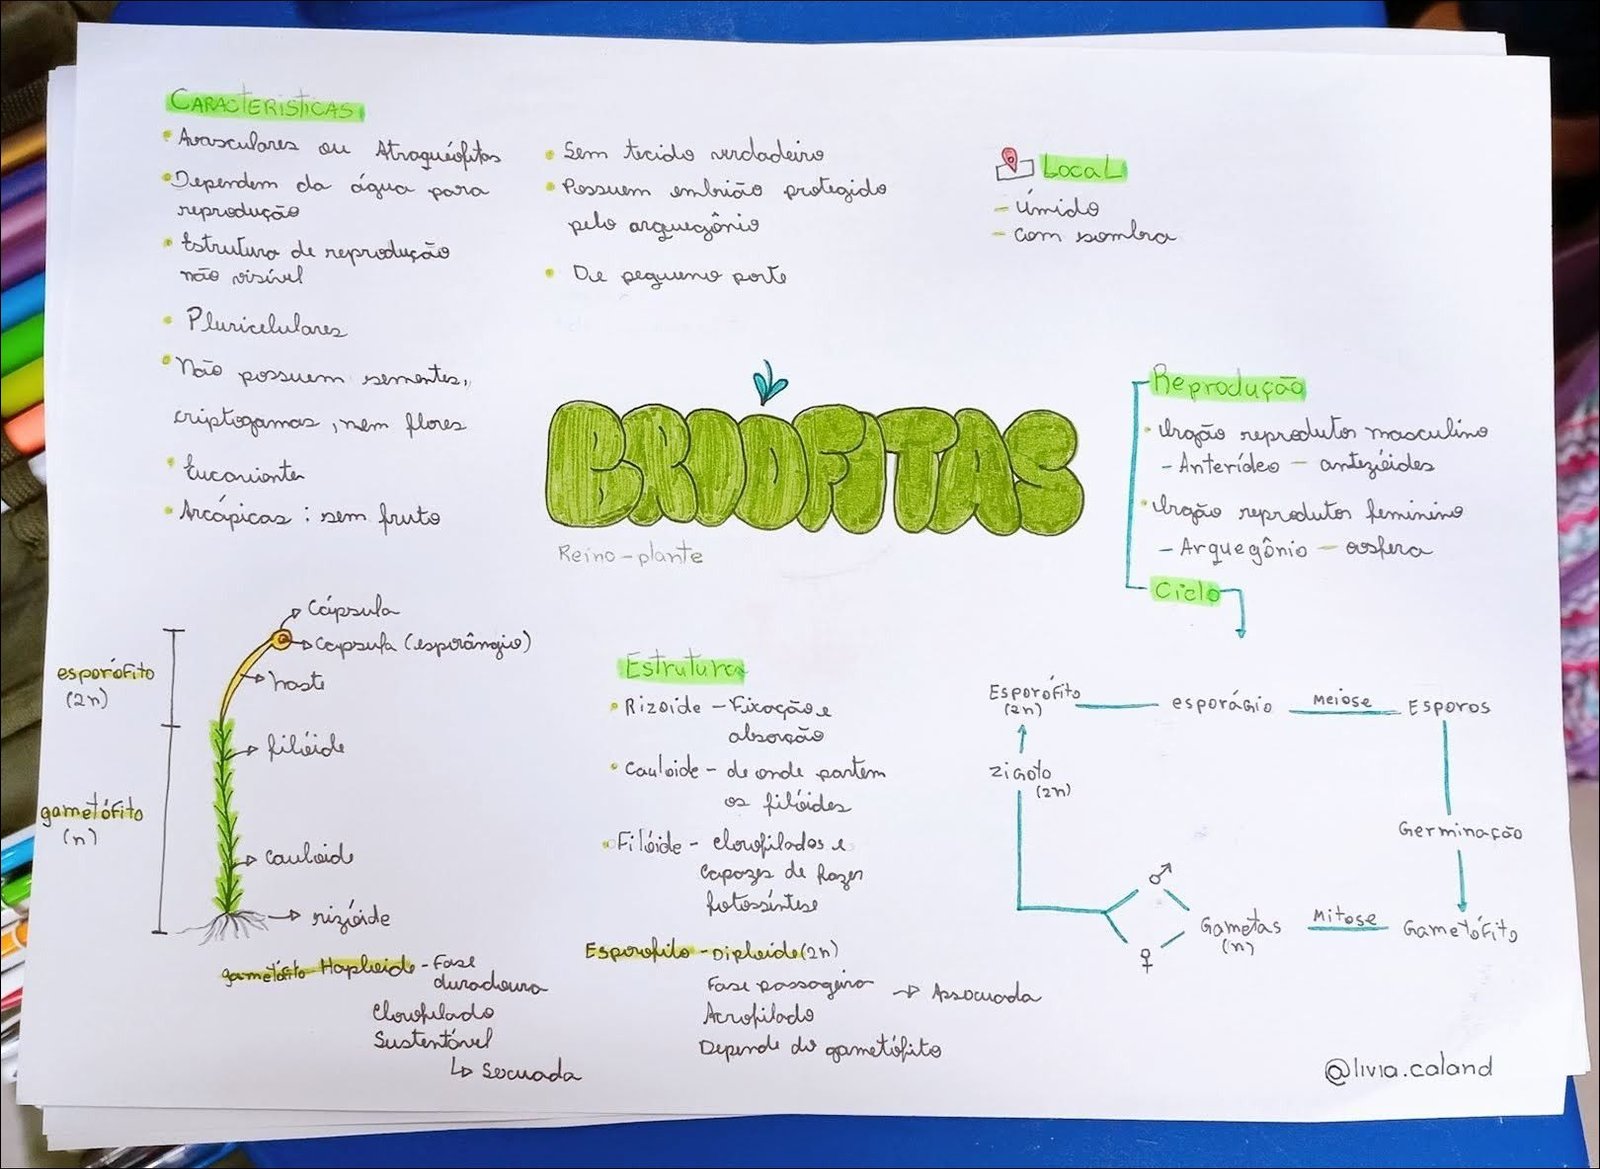 CARACTERISTICAS
• Avasculares ou Atraqueófitas
• Dependem da água para
reprodução
• Estrutura de reprodução
não visível
• Pluricelulares
• Não possuem sementes,
criptogamas, nem flores
• Eucarionte
• Arcápicas : sem fruto
• Sem tecido verdadeiro
• Possuem embrião protegido
pelo arquegônio
• De pequeno porte
Local
- úmido
- com sombra
BRIOFITAS
Reino-plante
Reprodução
• Orgão reprodutor masculino
- Anterídeo -
• Orgão reprodutor feminino
- Arquegônio - oosfera
Ciclo
Cápsula
capsula (esporângio)
haste
filióide
cauloide
rizióide
esporófito
(2n)
gametófito
(n)
gametófito Haploide - Fase
duradoura
Clorofilado
Sustentável
↳ Sexuada
Estrutura
• Rizoide - Fixação e
absorção
• Cauloide - de onde partem
os filióides
• Filióide - clorofilados e
capazes de fazer
fotossíntese
Esporofito - Diploide (2n)
Fase passageira → Assexuada
Aclorofilado
Depende do gametófito
Esporófito
(2n)
esporágio
meiose
Esporos
Germinação
Gametófito
Mitose
Gametas
(n)
♂
♀
Zigoto
(2n)
@livia.caland